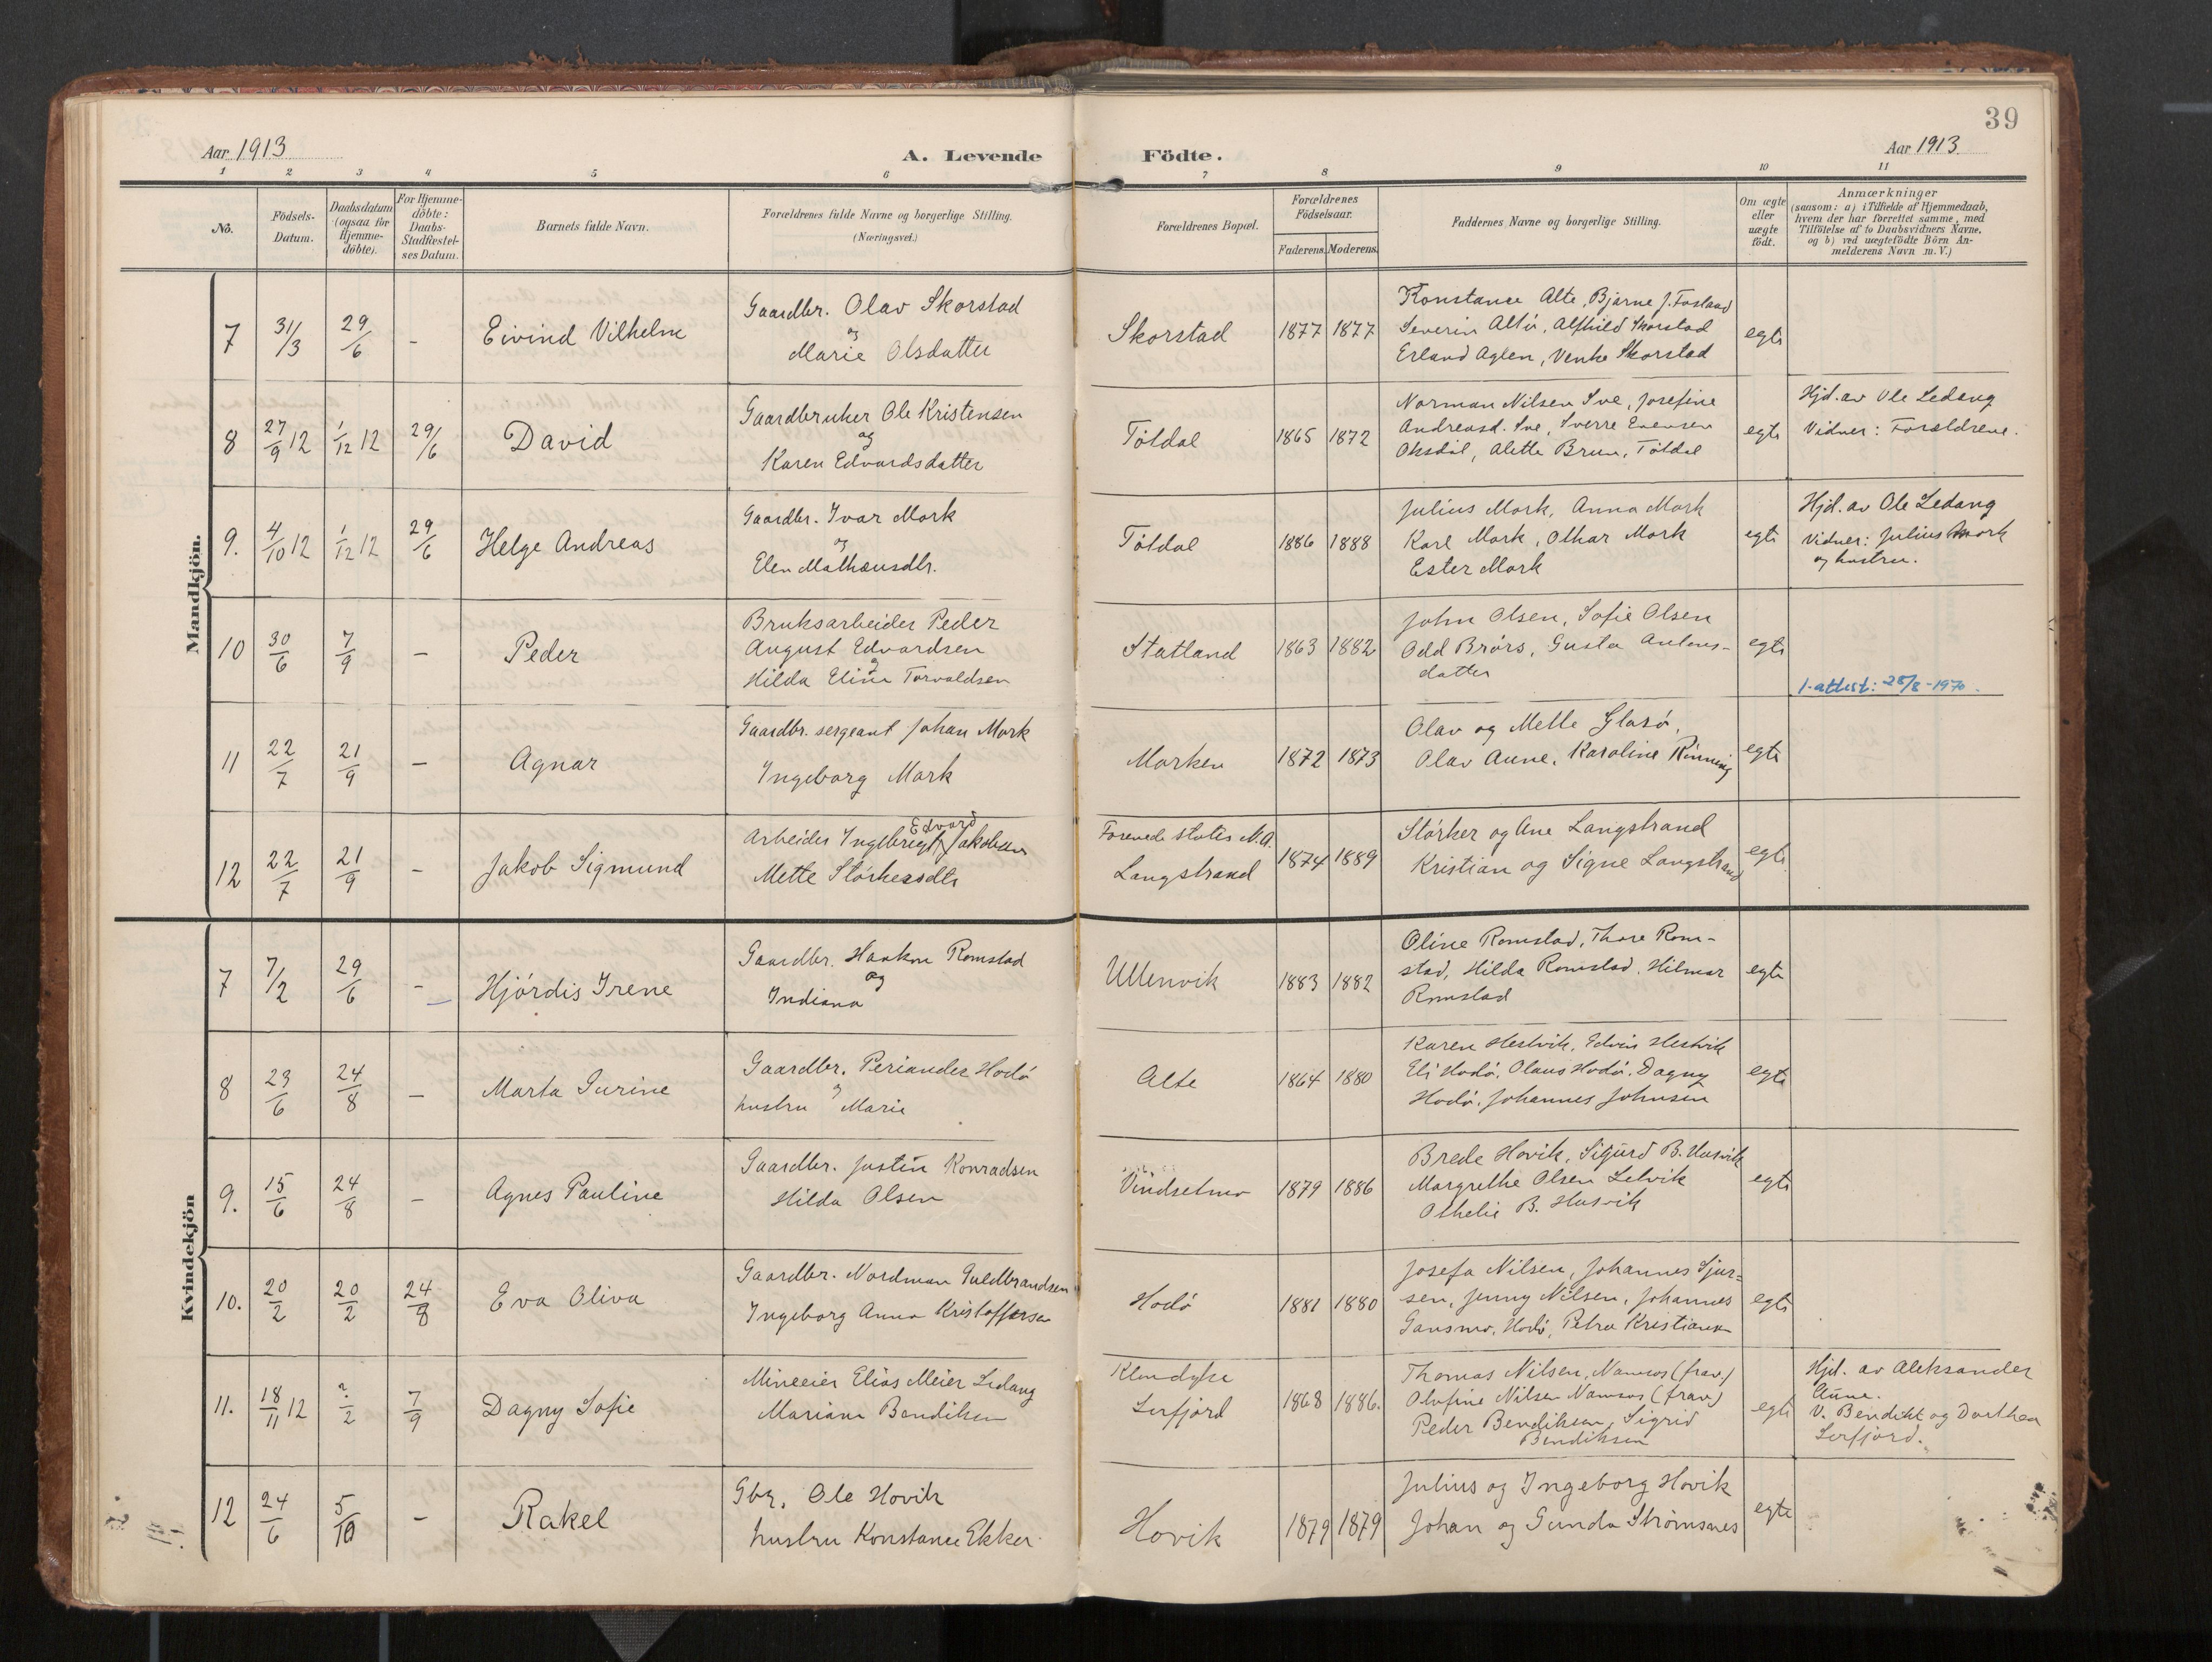 39
Aar 1913
A. Levende Födte.
Aar 1913.
1 2 3 4 5 6 7 8 9 10 11
No.
Födsels-
Datum.
Daabsdatum
(ogsaa for
Hjemme-
döbte).
For Hjemme-
döbte:
Daabs-
Stadfæstel-
ses Datum.
Barnets fulde Navn.
Forældrenes fulde Navne og borgerlige Stilling.
(Næringsvei.)
Forældrenes Bopæl.
Forældrenes
Födselsaar.
Faderens. Moderens.
Faddernes Navne og borgerlige Stilling.
Om ægte
eller
uægte
födt.
Anmærkninger
(saasom: a) i Tilfælde af Hjemmedaab,
hvem der har forrettet samme, med
Tilföielse af to Daabsvidners Navne,
og b) ved uægtefödte Börn An-
melderens Navn m. V.)
Mandkjön.
7 31/3 29/6 - Eivind Vilhelm
Gaardbr. Olav Skorstad
og
Marie Olsdatter
Skorstad 1877 1877
Konstanse Alte, Bjarne J. Fosland
Severin Alte, Alfhild Skorstad
Erland Aglen, Venke Skorstad
egte
8 27/9 12 1/12 12 29/6 David
Gaardbruker Ole Kristensen
og
Karen Edvardsdatter
Tötdal 1865 1872
Norman Nilsen Sve, Josefine
Andreasd. Sve, Sverre Evensen
Oksdal, Alette Brun, Tötdal
egte
Hjd. av Ole Ledang
Vidner: Forældrene.
9. 4/10 12 1/12 12 29/6 Helge Andreas
Gaardbr. Ivar Mork
og
Elen Mathæusdtr.
Tötdal 1886 1888
Julius Mork, Anna Mork
Karl Mork, Othar Mork
Ester Mork
egte
Hjd. av Ole Ledang
Vidner: Julius Mork
og hustru.
10 30/6 7/9 - Peder
Bruksarbeider Peder
August Edvardsen
og
Hilda Eline Torvaldsen
Statland 1863 1882
John Olsen, Sofie Olsen
Odd Brörs, Gusta Antons-
datter
egte
1-attest: 28/8-1970.
11 22/7 21/9 - Agnar
Gaardbr. sergeant Johan Mork
Ingeborg Mork
Morken 1872 1873
Olav og Mette Glasö,
Olav Aune, Karoline Rinning
egte
12 22/7 21/9 - Jakob Sigmund
Edvard
Arbeider Ingebrigt Jakobsen
Mette Störkersdtr
Forenede stater N.A.
Langstrand 1874 1889
Störker og Ane Langstrand
Kristian og Signe Langstrand
egte
Kvindekjön
7 7/2 29/6 - Hjördis Irene
Gaardbr. Haakon Romstad
og
Indiana
Ullenvik 1883 1882
Oline Romstad, Thore Rom-
stad, Hilda Romstad, Hilmar
Romstad
egte
8 23/6 24/8 - Marta Gurine
Gaardbr. Periander Hodö
og
hustru Marie
Alte 1864 1880
Karen Hestvik, Edvin Hestvik
Eli Hodö, Olaus Hodö, Dagny
Hodö, Johannes Johnsen
egte
9. 15/6 24/8 - Agnes Pauline
Gaardbr. Justin Konradsen
Hilda Olsen
Vindsetmo 1879 1886
Brede Hovik, Sigurd B. Husvik
Margrethe Olsen Letvik
Othelie B. Husvik
egte
10. 20/2 20/2 24/8 Eva Oliva
Gaardbr. Nordman Guldbrandsen
Ingeborg Anna Kristoffersen
Hodö 1881 1880
Josefa Nilsen, Johannes Sjur-
sen, Jenny Nilsen, Johannes
Gansmo, Hodö, Petra Kristiansen
egte
11. 18/11 12 ?/2 7/9 Dagny Sofie
Mineeier Elias Meier Ledang
Mariane Bendiksen
Klondyke
Serfjord 1868 1886.
Thomas Nilsen, Namsos (frav.)
Olufine Nilsen Namsos (frav.)
Peder Bendiksen, Sigrid
Bendiksen
egte
Hjd. av Aleksander
Aune.
V. Bendikt og Dorthea
Serfjord.
12 24/6 5/10 - Rakel
Gbr. Ole Hovik
hustru Konstance Ekker.
Hovik 1879 1879
Julius og Ingeborg Hovik
Johan og Gunda Strömsnes
egte